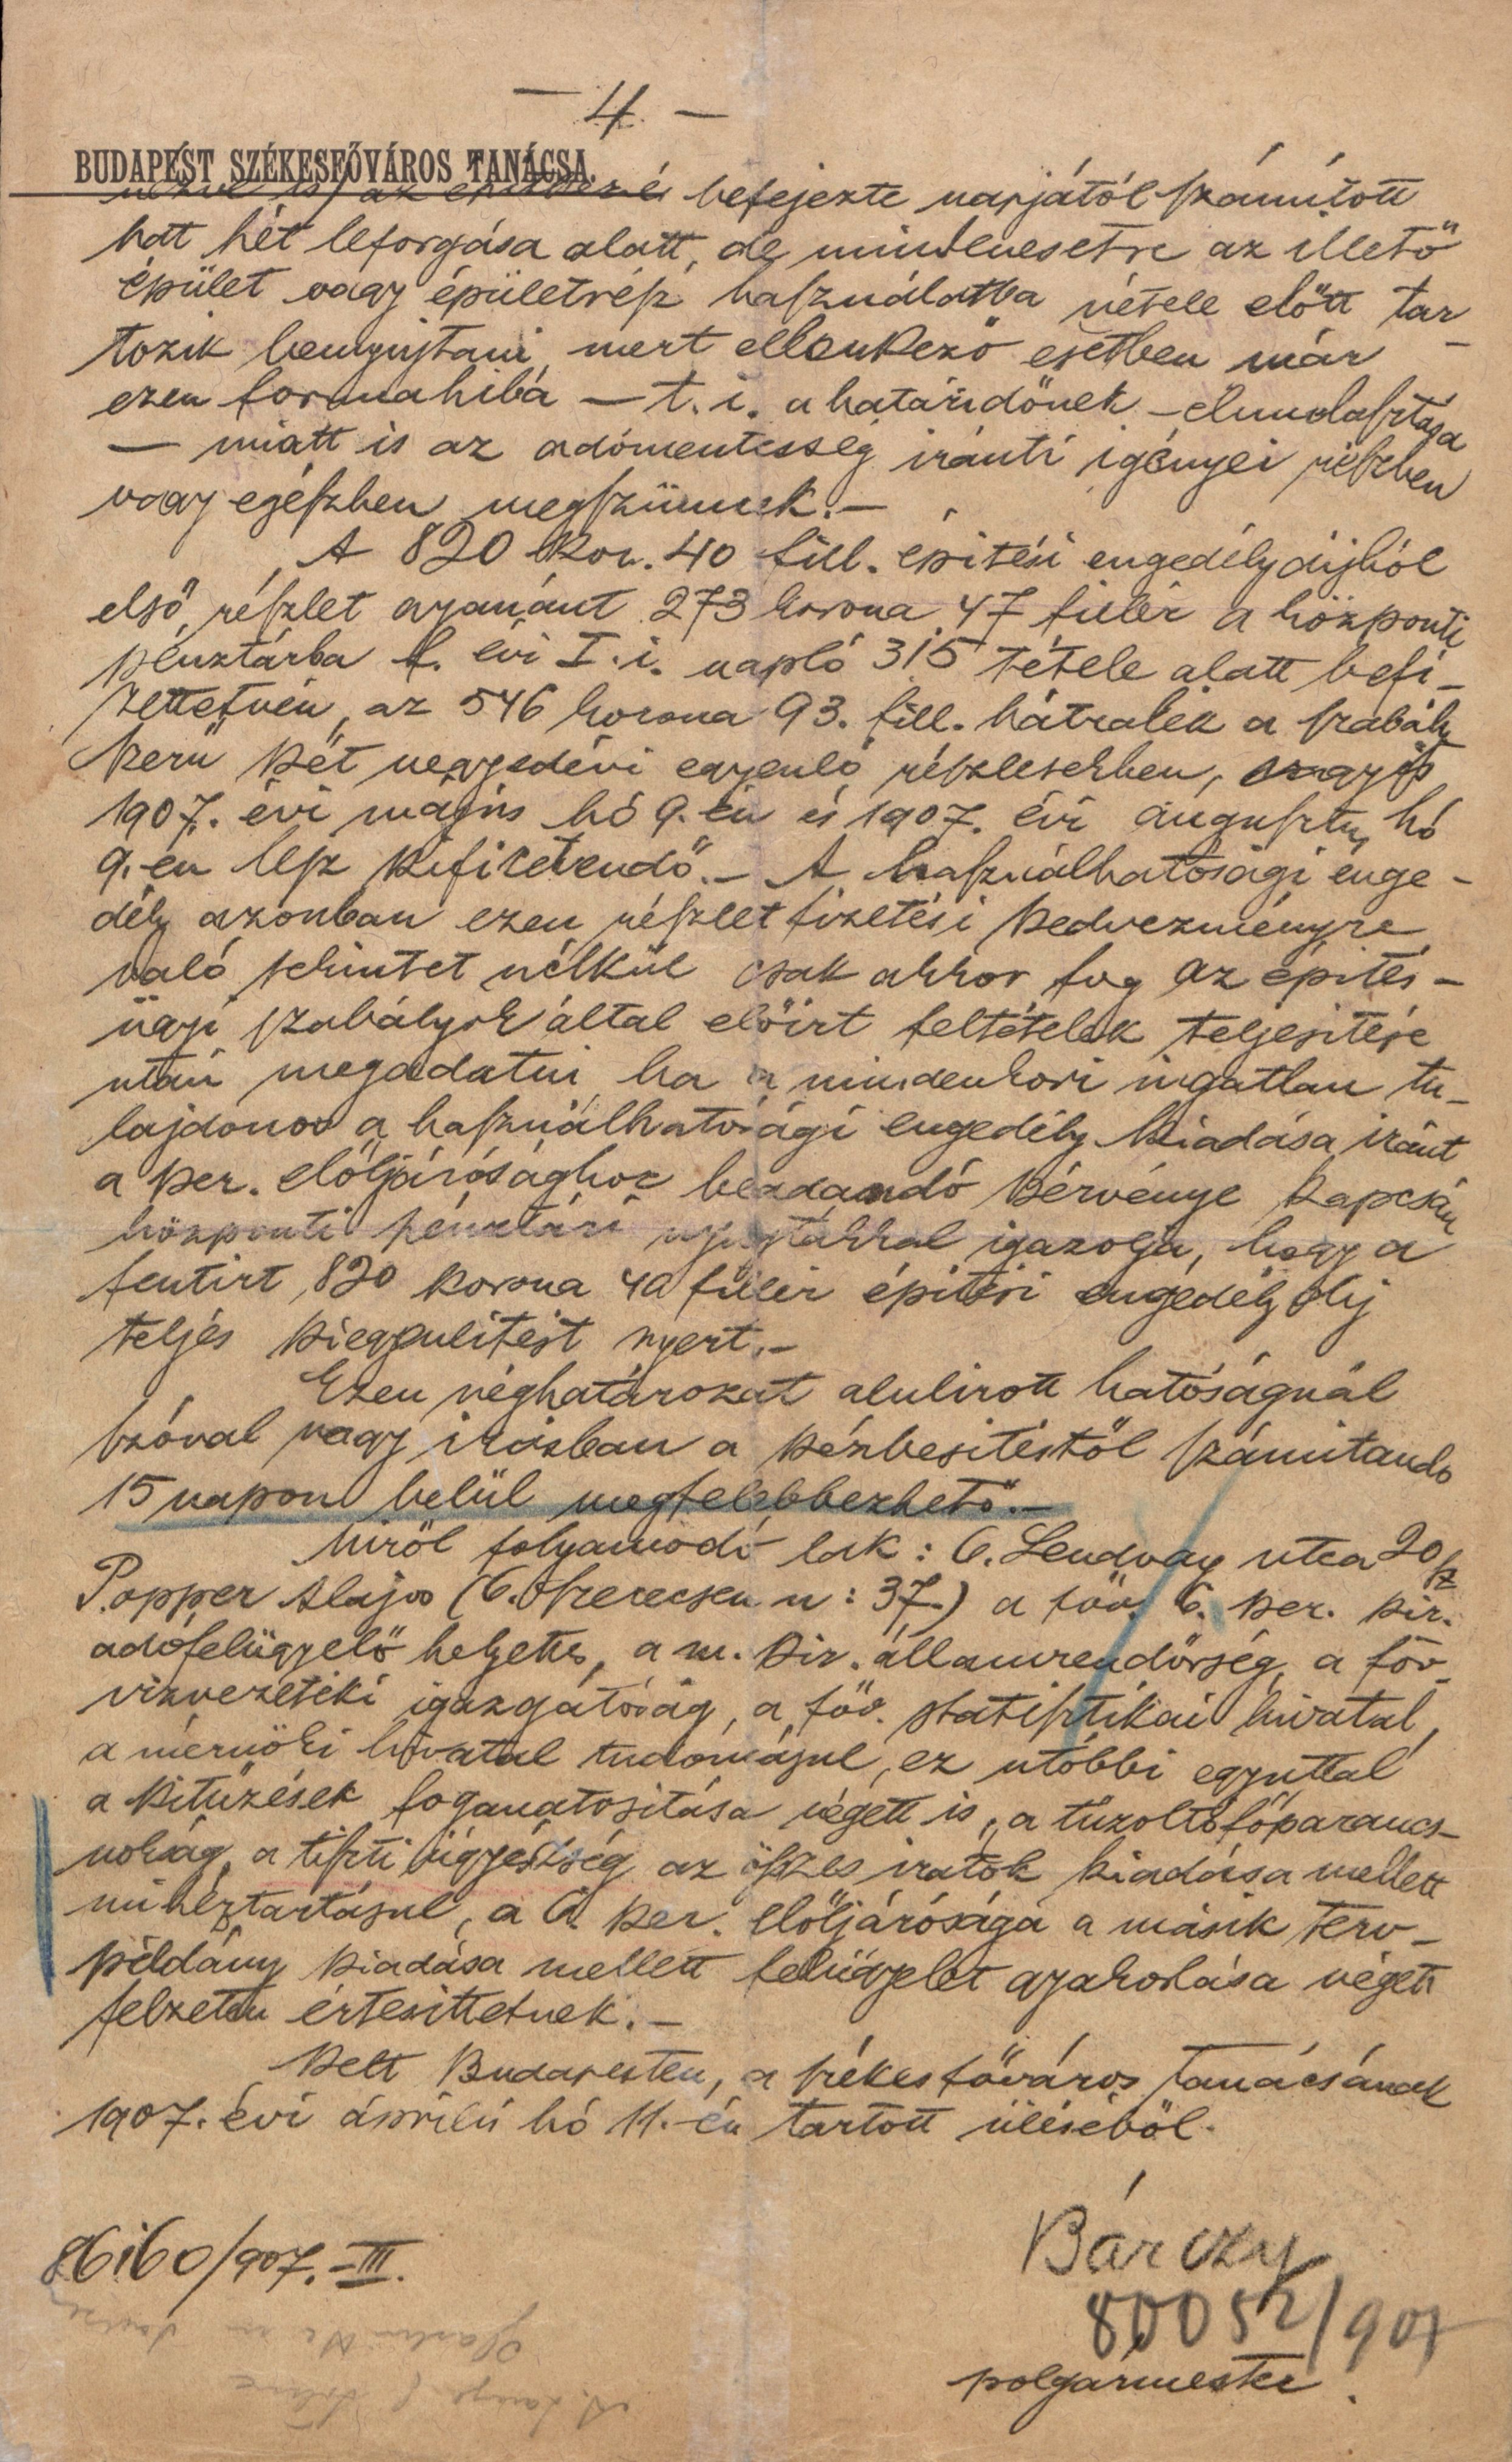 — 4. —
BUDAPEST SZÉKESFŐVÁROS TANÁCSA.
az építkezés befejezte napjától számított
hat hét leforgása alatt, de mindenesetre az illető
épület vagy épületrész használatba vétele előtt tar-
tozik benyujtani mert ellenkező esetben már
ezen formahiba — t. i. a határidőnek — elmulasztása
— miatt is az adómentesség iránti igényei részben
vagy egészben megszünnek. —
A 820 kor. 40 fill. építési engedély díjból
első részlet gyanánt 273 korona 47 fillér a központi
pénztárba f. évi I. i. napló 315 tétele alatt befi-
zettetvén, az 546 korona 93. fill. hátralék a szabály
szerű két negyedévi egyenlő részletekben,
1907. évi május hó 9.-én és 1907. évi augusztus hó
9.-én lesz kifizetendő. — A használhatósági enge-
dély azonban ezen részletfizetési kedvezményre
való tekintet nélkül csak akkor fog az építés-
ügyi szabályok által előirt feltételek teljesitése
után megadatni ha a mindenkori ingatlan tu-
lajdonos a használhatósági engedély kiadása iránt
a ker. előljárósághoz beadandó kérvénye kapcsán
központi pénztári nyugtákkal igazolja, hogy a
fentirt 820 korona 40 fillér építési engedély díj
teljes kiegyenlitést nyert. —
Ezen véghatározat alulirott hatóságnál
szóval vagy irásban a kézbesitéstől számitandó
15 napon belül megfelebbezhető. —
Miről folyamodó lak: 6. Lendvay utca 20 sz
Popper Alajos (6. Szerecsen u: 37.) a föv. 6. ker. kir.
adófelügyelő helyettes, a m. kir. államrendőrség, a föv.
vizvezetéki igazgatóság, a föv. statisztikai hivatal,
a mérnöki hivatal tudomásul, ez utóbbi egyuttal
a kitűzések foganatositása végett is, a tűzoltó főparancs-
nokság, a tiszti ügyészség az összes iratok kiadása mellett
mihez tartásul, a 6. ker. előljárósága a másik terv-
példány kiadása mellett felügyelet gyakorlása végett
felzeten értesittetnek. —
Kelt Budapesten, a székesfőváros tanácsának
1907. évi április hó 11.-én tartott üléséből.
86160/907.-III.
Bárczy
80052/907
polgármester.